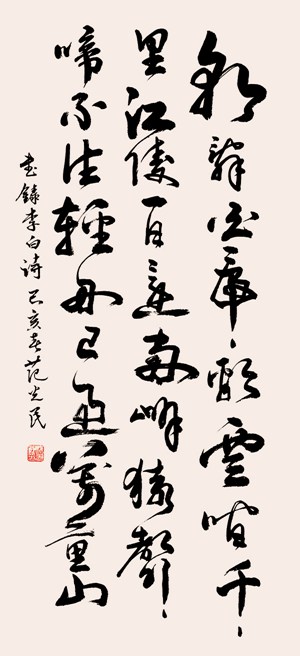 朝辭白帝彩雲間千
里江陵一日還兩岸猿聲
啼不住輕舟已過萬重山
書錄李白詩己亥春范光民